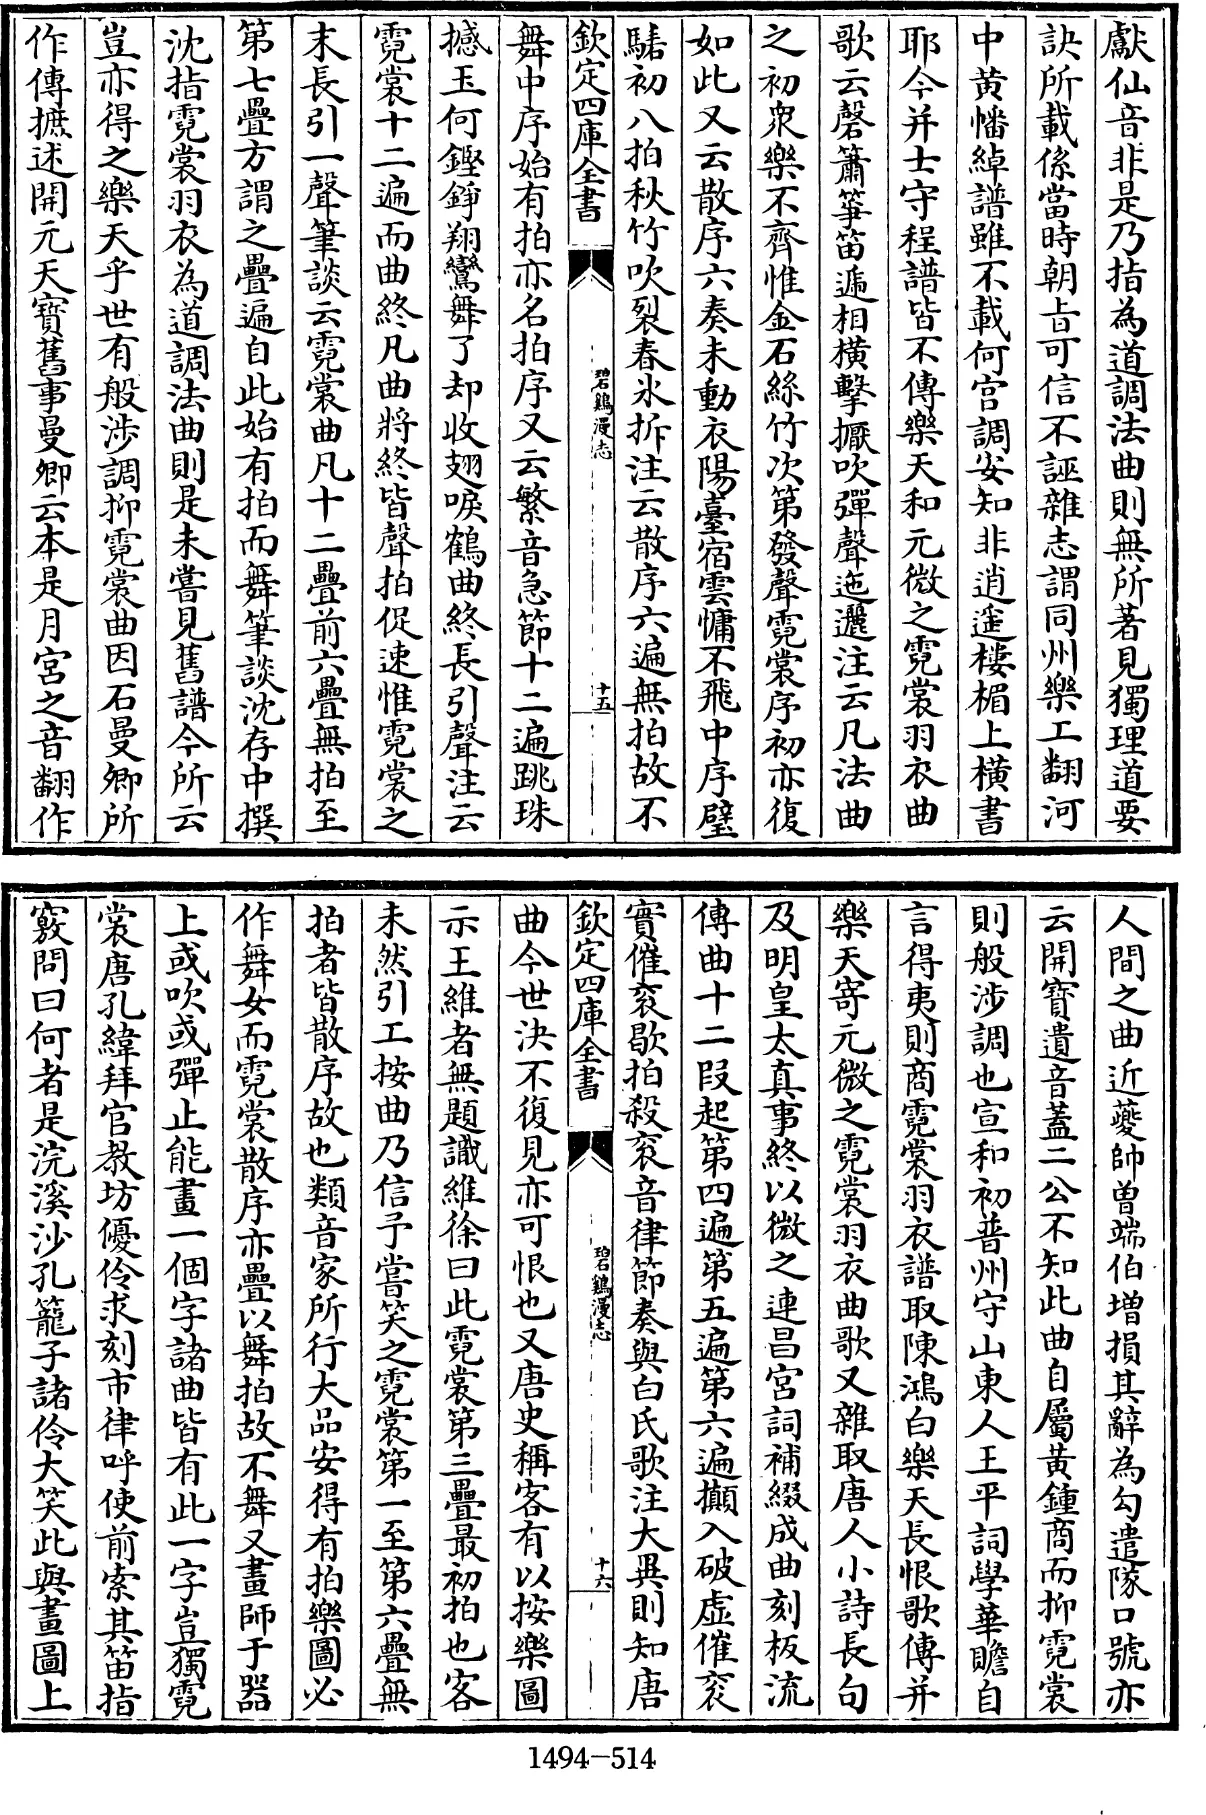 獻仙音非是乃指為道調法曲則無所著見獨理道要
訣所載係當時朝旨可信不誣雜志謂同州樂工翻河
中黄幡綽譜雖不載何宫調安知非逍遥樓楣上橫書
耶今并士守程譜皆不傳樂天和元微之霓裳羽衣曲
歌云磬簫箏笛遞相橫擊擫吹彈聲迤邐注云凡法曲
之初衆樂不齊惟金石絲竹次第發聲霓裳序初亦復
如此又云散序六奏未動衣陽臺宿雲慵不飛中序擘
騞初入拍秋竹吹裂春氷拆注云散序六遍無拍故不
欽定四庫全書
碧鷄漫志
十五
舞中序始有拍亦名拍序又云繁音急節十二遍跳珠
撼玉何鏗錚翔鸞舞了却收翅唳鶴曲終長引聲注云
霓裳十二遍而曲終凡曲將終皆聲拍促速惟霓裳之
末長引一聲筆談云霓裳曲凡十二疊前六疊無拍至
第七疊方謂之疊遍自此始有拍而舞筆談沈存中撰
沈指霓裳羽衣為道調法曲則是未嘗見舊譜今所云
豈亦得之樂天乎世有般涉調抑霓裳曲因石曼卿所
作傳摭述開元天寳舊事曼卿云本是月宮之音翻作
人間之曲近夔帥曽端伯增損其辭為勾遣隊口號亦
云開寳遺音蓋二公不知此曲自屬黄鍾商而抑霓裳
則般涉調也宣和初普州守山東人王平詞學華贍自
言得夷則商霓裳羽衣譜取陳鴻白樂天長恨歌傳并
樂天寄元微之霓裳羽衣曲歌又雜取唐人小詩長句
及明皇太真事終以微之連昌宮詞補綴成曲刻板流
傳曲十二段起第四遍第五遍第六遍攧入破虚催衮
實催衮歇拍殺衮音律節奏與白氏歌注大異則知唐
欽定四庫全書
碧鷄漫志
十六
曲今世決不復見亦可恨也又唐史稱客有以按樂圖
示王維者無題識維徐曰此霓裳第三疊最初拍也客
未然引工按曲乃信予嘗笑之霓裳第一至第六疊無
拍者皆散序故也類音家所行大品安得有拍樂圖必
作舞女而霓裳散序亦疊以舞拍故不舞又畫師于器
上或吹或彈止能畫一個字諸曲皆有此一字豈獨霓
裳唐孔緯拜官教坊優伶求刻市律呼使前索其笛指
竅問曰何者是浣溪沙孔籠子諸伶大笑此與畫圖上
1494-514